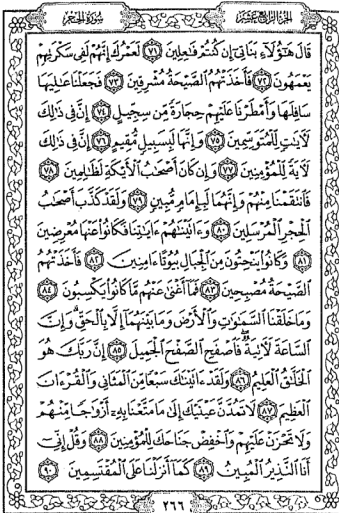 الجزء الرابع عشر
سورة الحجر
قَالَ هَٰٓؤُلَآءِ بَنَاتِىٓ إِن كُنتُمْ فَٰعِلِينَ ٧١ لَعَمْرُكَ إِنَّهُمْ لَفِى سَكْرَتِهِمْ
يَعْمَهُونَ ٧٢ فَأَخَذَتْهُمُ ٱلصَّيْحَةُ مُشْرِقِينَ ٧٣ فَجَعَلْنَا عَٰلِيَهَا
سَافِلَهَا وَأَمْطَرْنَا عَلَيْهِمْ حِجَارَةً مِّن سِجِّيلٍ ٧٤ إِنَّ فِى ذَٰلِكَ
لَءَايَٰتٍ لِّلْمُتَوَسِّمِينَ ٧٥ وَإِنَّهَا لَبِسَبِيلٍ مُّقِيمٍ ٧٦ إِنَّ فِى ذَٰلِكَ
لَءَايَةً لِّلْمُؤْمِنِينَ ٧٧ وَإِن كَانَ أَصْحَٰبُ ٱلْأَيْكَةِ لَظَٰلِمِينَ ٧٨
فَٱنتَقَمْنَا مِنْهُمْ وَإِنَّهُمَا لَبِإِمَامٍ مُّبِينٍ ٧٩ وَلَقَدْ كَذَّبَ أَصْحَٰبُ
ٱلْحِجْرِ ٱلْمُرْسَلِينَ ٨٠ وَءَاتَيْنَٰهُمْ ءَايَٰتِنَا فَكَانُوا۟ عَنْهَا مُعْرِضِينَ
٨١ وَكَانُوا۟ يَنْحِتُونَ مِنَ ٱلْجِبَالِ بُيُوتًا ءَامِنِينَ ٨٢ فَأَخَذَتْهُمُ
ٱلصَّيْحَةُ مُصْبِحِينَ ٨٣ فَمَآ أَغْنَىٰ عَنْهُم مَّا كَانُوا۟ يَكْسِبُونَ ٨٤
وَمَا خَلَقْنَا ٱلسَّمَٰوَٰتِ وَٱلْأَرْضَ وَمَا بَيْنَهُمَآ إِلَّا بِٱلْحَقِّ وَإِنَّ
ٱلسَّاعَةَ لَءَاتِيَةٌ فَٱصْفَحِ ٱلصَّفْحَ ٱلْجَمِيلَ ٨٥ إِنَّ رَبَّكَ هُوَ
ٱلْخَلَّٰقُ ٱلْعَلِيمُ ٨٦ وَلَقَدْ ءَاتَيْنَٰكَ سَبْعًا مِّنَ ٱلْمَثَانِى وَٱلْقُرْءَانَ
ٱلْعَظِيمَ ٨٧ لَا تَمُدَّنَّ عَيْنَيْكَ إِلَىٰ مَا مَتَّعْنَا بِهِۦٓ أَزْوَٰجًا مِّنْهُمْ
وَلَا تَحْزَنْ عَلَيْهِمْ وَٱخْفِضْ جَنَاحَكَ لِلْمُؤْمِنِينَ ٨٨ وَقُلْ إِنِّىٓ
أَنَا ٱلنَّذِيرُ ٱلْمُبِينُ ٨٩ كَمَآ أَنزَلْنَا عَلَى ٱلْمُقْتَسِمِينَ ٩٠
٢٦٦